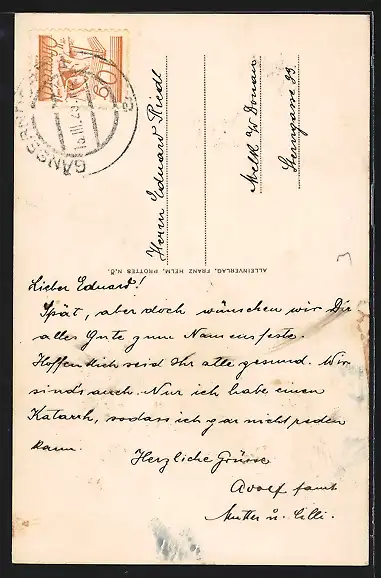 GÄNSERNDORF
15.III.25
60
Herrn Eduard Riedl
Melk a/ Donau
Sterngasse 23
ALLEINVERLAG, FRANZ HELM, PROTTES N.Ö.
Lieber Eduard!
Spät, aber doch wünschen wir Dir
alles Gute zum Namensfeste.
Hoffentlich seid Ihr alle gesund. Wir
sinds auch. Nur ich habe einen
Katarrh, sodass ich gar nicht reden
kann.
Herzliche Grüsse
Adolf samt
Mutter u. Cilli.